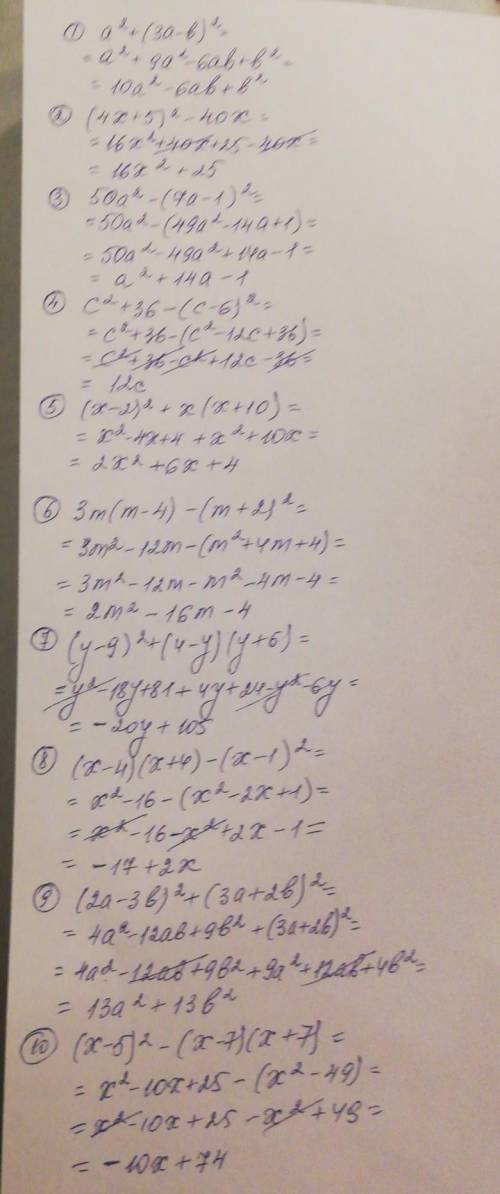 ① a² + (3a-b)² =
= a² + 9a² - 6ab + b² =
= 10a² - 6ab + b²
② (4x+5)² - 40x =
= 16x² + 40x + 25 - 40x =
= 16x² + 25
③ 50a² - (7a-1)² =
= 50a² - (49a² - 14a + 1) =
= 50a² - 49a² + 14a - 1 =
= a² + 14a - 1
④ c² + 36 - (c-6)² =
= c² + 36 - (c² - 12c + 36) =
= c² + 36 - c² + 12c - 36 =
= 12c
⑤ (x-2)² + x(x+10) =
= x² - 4x + 4 + x² + 10x =
= 2x² + 6x + 4
⑥ 3m(m-4) - (m+2)² =
= 3m² - 12m - (m² + 4m + 4) =
= 3m² - 12m - m² - 4m - 4 =
= 2m² - 16m - 4
⑦ (y-9)² + (4-y)(y+6) =
= y² - 18y + 81 + 4y + 24 - y² - 6y =
= -20y + 105
⑧ (x-4)(x+4) - (x-1)² =
= x² - 16 - (x² - 2x + 1) =
= x² - 16 - x² + 2x - 1 =
= -17 + 2x
⑨ (2a-3b)² + (3a+2b)² =
= 4a² - 12ab + 9b² + (3a+2b)² =
= 4a² - 12ab + 9b² + 9a² + 12ab + 4b² =
= 13a² + 13b²
⑩ (x-5)² - (x-7)(x+7) =
= x² - 10x + 25 - (x² - 49) =
= x² - 10x + 25 - x² + 49 =
= -10x + 74